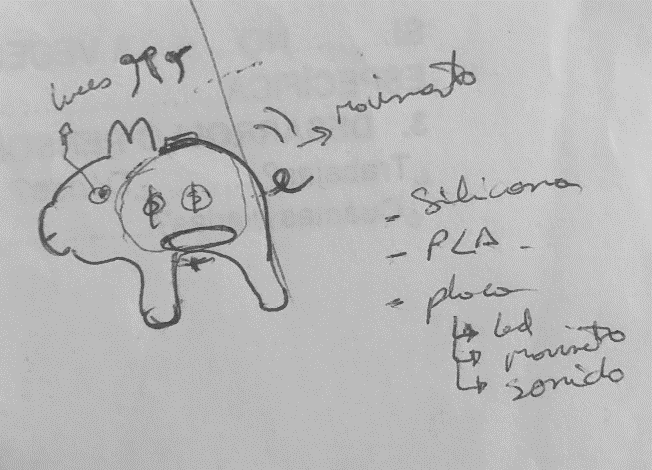 luces
movimiento
- Silicona
- PLA -
- placa
↳ led
↳ movimiento
↳ sonido